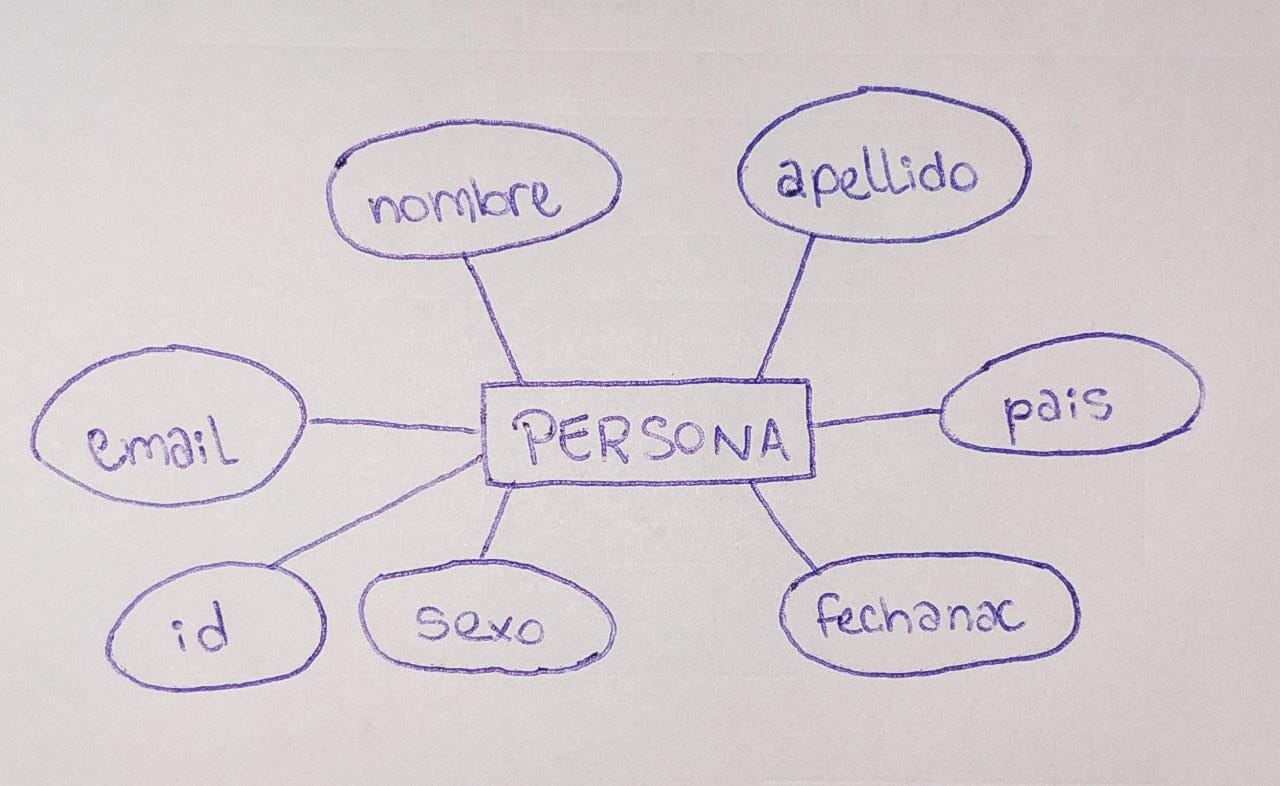 nombre
apellido
email
PERSONA
pais
id
sexo
fechanac